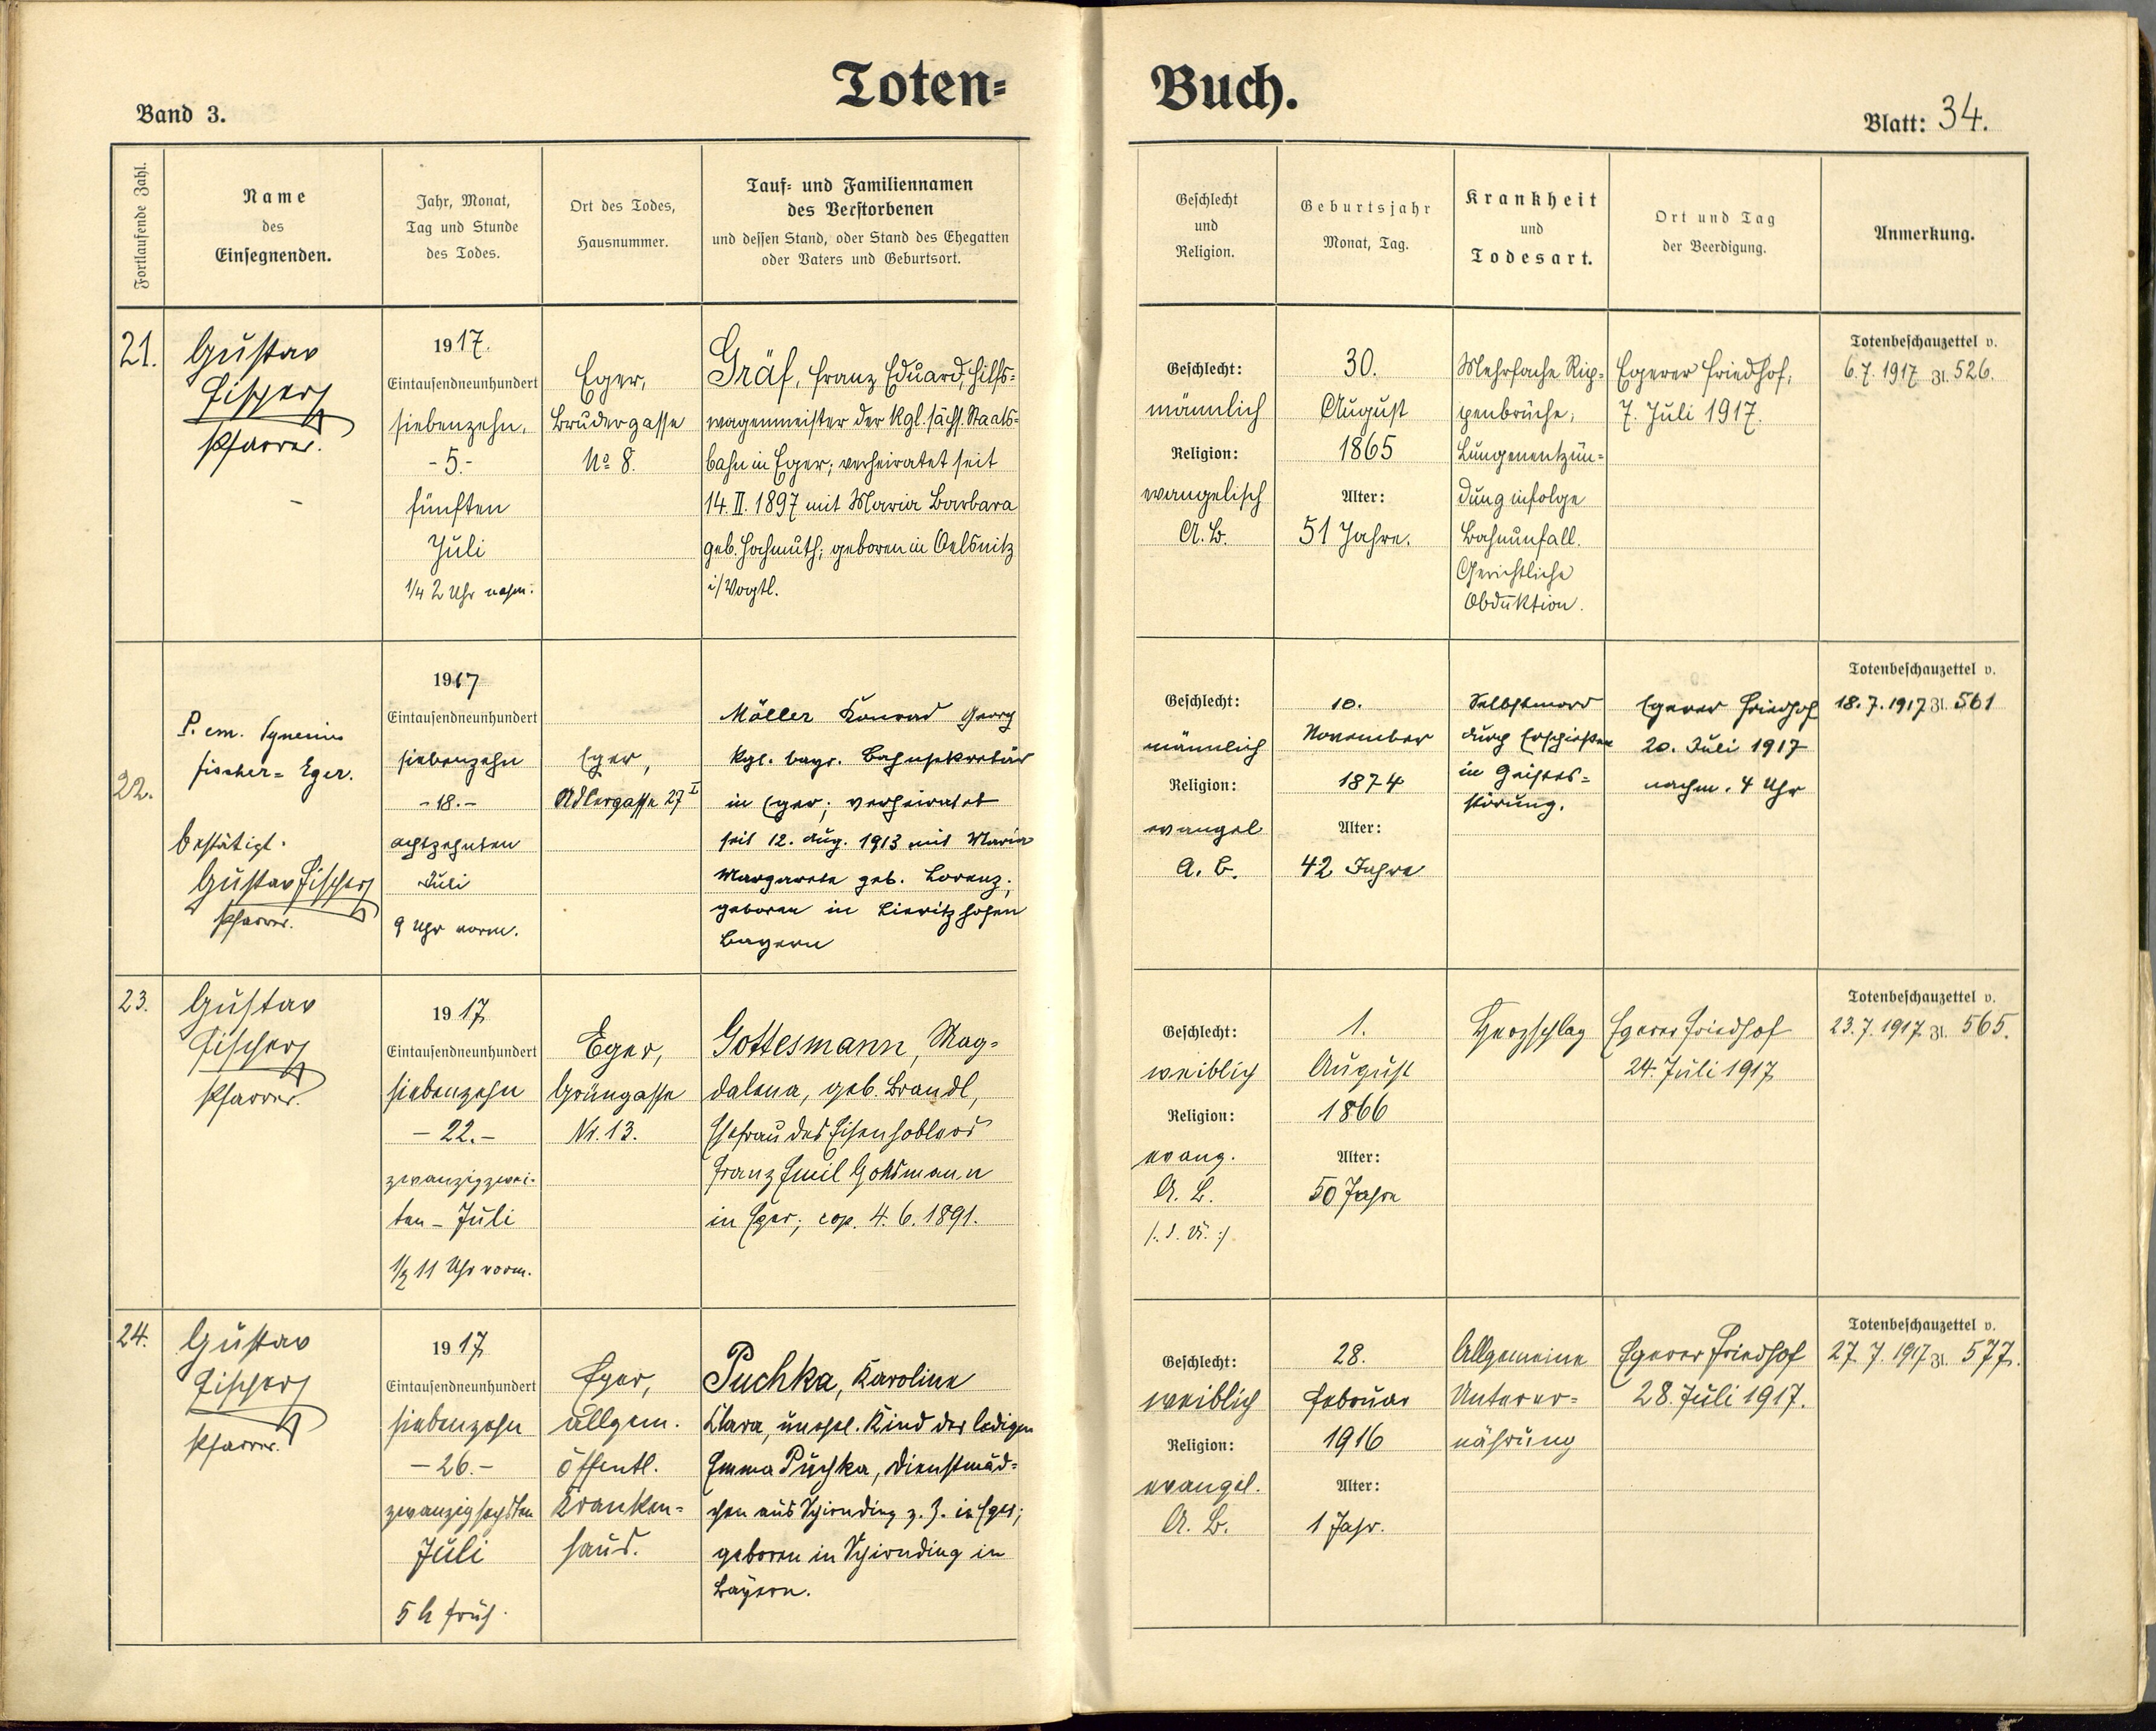 Toten=
Buch.
Band 3.
Blatt: 34.
Fortlaufende Zahl.
Name
des
Einsegnenden.
Jahr, Monat,
Tag und Stunde
des Todes.
Ort des Todes,
Hausnummer.
Tauf= und Familiennamen
des Verstorbenen
und dessen Stand, oder Stand des Ehegatten
oder Vaters und Geburtsort.
Geschlecht
und
Religion.
Geburtsjahr
Monat, Tag.
Krankheit
und
Todesart.
Ort und Tag
der Beerdigung.
Anmerkung.
21.
Gustav
Fischer
Pfarrer.
1917.
Eintausendneunhundert
siebenzehn,
-5.-
fünften
Juli
1/4 2 Uhr nachm:
Eger,
Brudergasse
No 8.
Gräf, Franz Eduard, Hilfs=
wagenmeister der Kgl. sächs. Staats=
bahn in Eger; verheiratet seit
14. II. 1897 mit Maria Barbara
geb. Hochmuth; geboren in Oelsnitz
i/Vogtl.
Geschlecht:
männlich
Religion:
evangelisch
A. B.
30.
August
1865
Alter:
51 Jahre.
Mehrfache Rip=
penbrüche;
Lungenentzün=
dung infolge
Bahnunfall.
Gerichtliche
Obduktion.
Egerer Friedhof,
7. Juli 1917.
Totenbeschauzettel v.
6. 7. 1917 Zl. 526.
22.
P. em.
Fischer= Eger.
bestätigt.
Gustav Fischer
Pfarrer.
1917
Eintausendneunhundert
siebenzehn
-18.-
achtzehnten
Juli
9 Uhr vorm.
Eger,
Adlergasse 27 I
Möller Konrad Georg
Kgl. bayr. Bahnsekretär
in Eger; verheiratet
seit 12. Aug. 1913 mit Maria
Margarete geb. Lorenz;
geboren in
Bayern
Geschlecht:
männlich
Religion:
evangel
A. B.
10.
November
1874
Alter:
42 Jahre
Selbstmord
durch Erschießen
in Geistes=
störung.
Egerer Friedhof
20. Juli 1917
nachm. 4 Uhr
Totenbeschauzettel v.
18. 7. 1917 Zl. 561
23.
Gustav
Fischer
Pfarrer.
1917
Eintausendneunhundert
siebenzehn
-22.-
zwanzigzwei-
ten- Juli
1/2 11 Uhr vorm.
Eger,
Grüngasse
Nr. 13.
Gottesmann, Mag=
dalena, geb. Brandl,
Ehefrau des Eisenhoblers
Franz Emil Gottsmann
in Eger; cop. 4. 6. 1891.
Geschlecht:
weiblich
Religion:
evang.
A. B.
1.
August
1866
Alter:
50 Jahre
Herzschlag
Egerer Friedhof
24. Juli 1917
Totenbeschauzettel v.
23. 7. 1917 Zl. 565.
24.
Gustav
Fischer
Pfarrer.
1917
Eintausendneunhundert
siebenzehn
-26.-
zwanzigsechsten
Juli
5 h früh.
Eger,
allgem.
öffentl.
Kranken=
haus.
Puchka, Karoline
Klara, unehel. Kind der ledigen
Emma Puchka, Dienstmäd=
chen aus Schirnding z. Z. in Eger;
geboren in Schirnding in
Bayern.
Geschlecht:
weiblich
Religion:
evangel.
A. B.
28.
Februar
1916
Alter:
1 Jahr.
Allgemeine
Unterer=
nährung
Egerer Friedhof
28. Juli 1917.
Totenbeschauzettel v.
27. 7. 1917 Zl. 577.